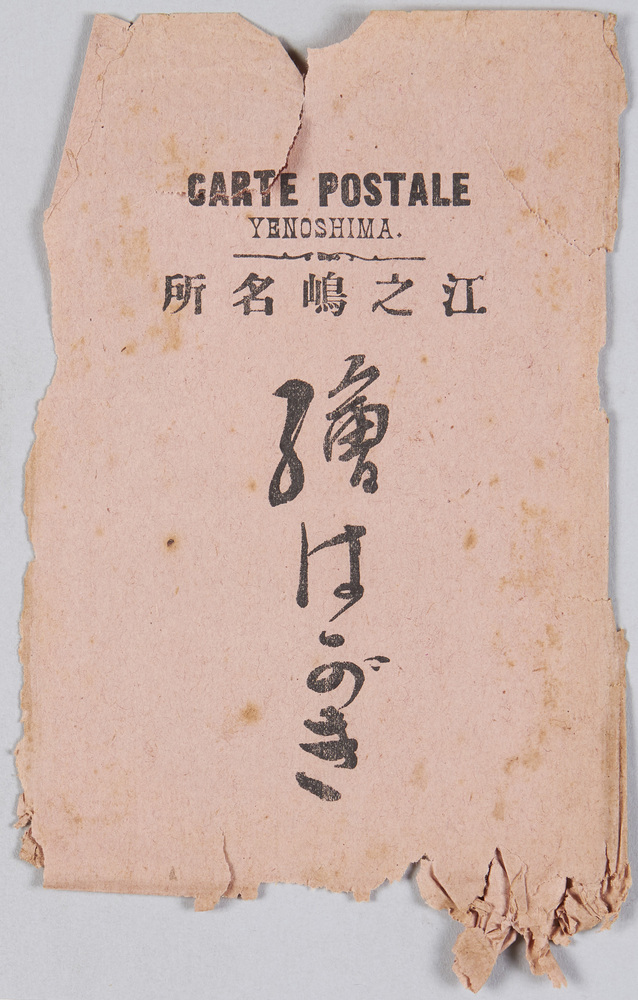 CARTE POSTALE
YENOSHIMA.
江之嶋名所
繪はがき